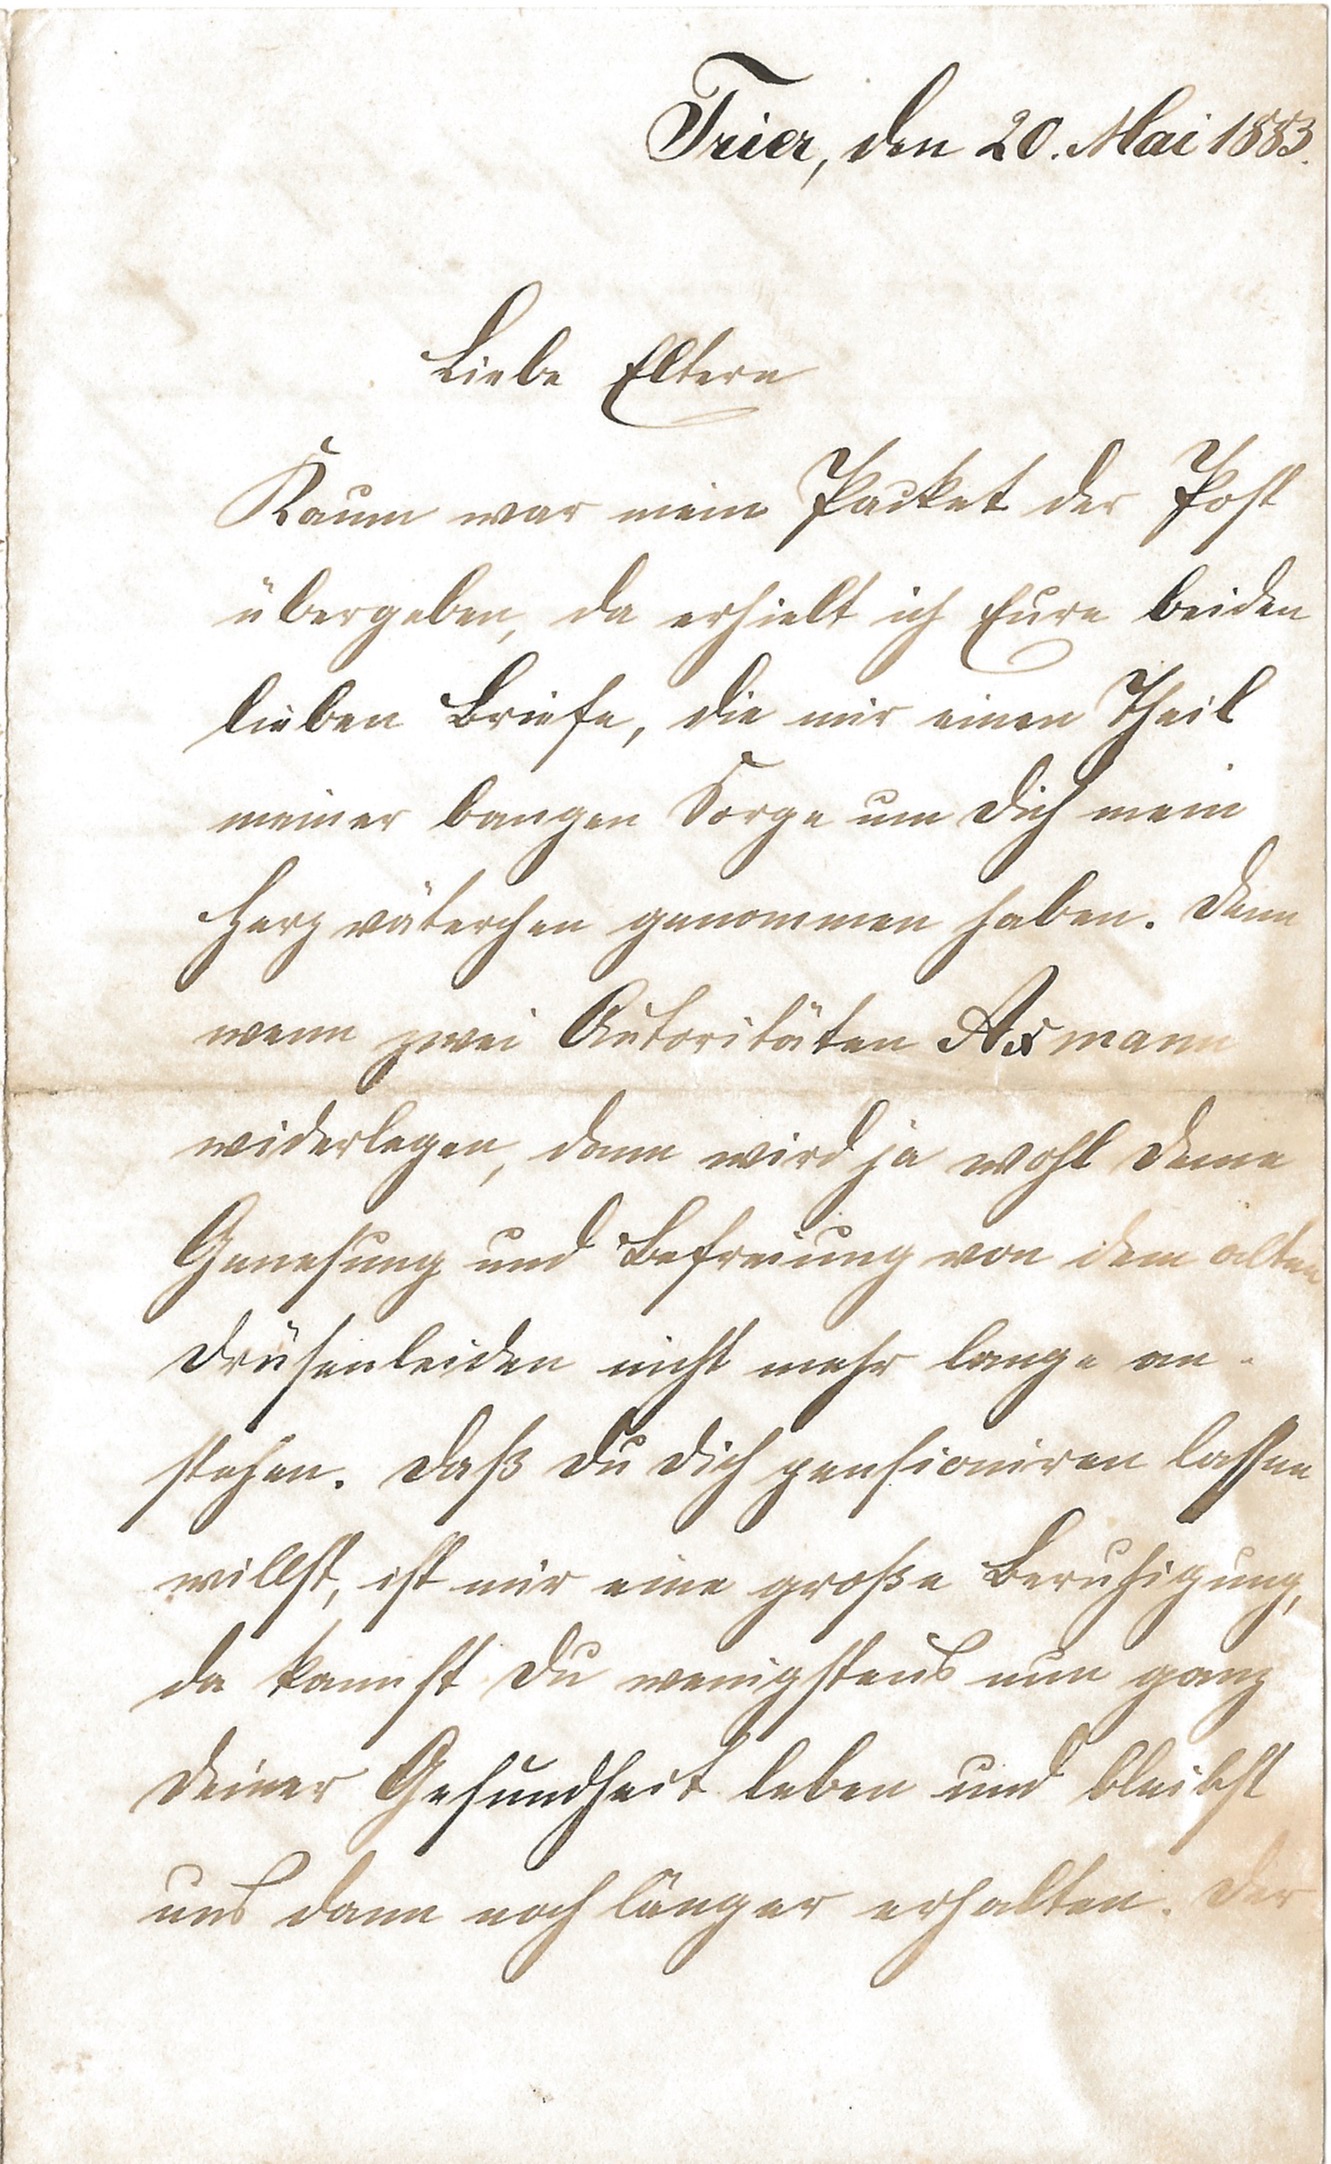 Trier, den 20. Mai 1883.
Liebe Eltern
Kaum war mein Packet der Post
übergeben, da erhielt ich Eure beiden
lieben Briefe, die mir einen Theil
meiner bangen Sorge um Dich mein
Herzväterchen genommen haben. Denn
wenn zwei Autoritäten Axmann
widerlegen, dann wird ja wohl Deine
Genesung und Befreiung von dem alten
Drüsenleiden nicht mehr lange an-
stehen. Daß Du Dich pensioniren lassen
willst, ist mir eine große Beruhigung,
da kannst Du wenigstens nun ganz
Deiner Gesundheit leben und bleibst
uns dann noch länger erhalten. Der